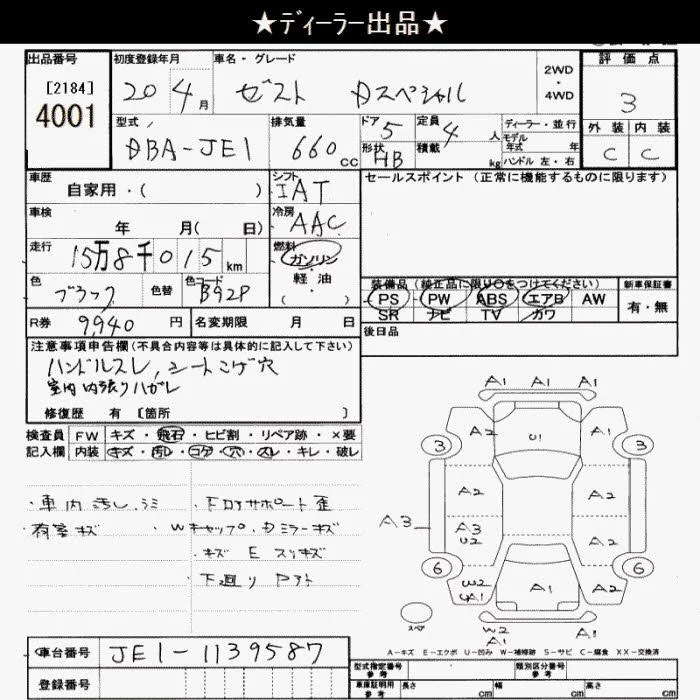 ★ディーラー出品★
出品番号 初度登録年月 車名・グレード 評価点
[2184] 20 4月 ゼスト Dスペシャル 2WD・4WD 3
4001
型式 排気量 ドア 定員 ディーラー・並行 外装 内装
DBA-JE1 660cc 5 4人 モデル年式 年 C C
形状 HB 積載 kg ハンドル 左・右
車歴 自家用・( ) シフト IAT セールスポイント (正常に機能するものに限ります)
車検 年 月( 日) 冷房 AAC
走行 15万8千015km 燃料 ガソリン・軽油・( )
色 ブラック 色替 色コード B92P
装備品 (純正品に限り○をつけてください) 新車保証書
PS PW ABS エアB AW 有・無
SR ナビ TV カワ
R券 9,940円 名変期限 月 日 後日品
注意事項申告欄(不具合内容等は具体的に記入して下さい)
ハンドルスレ, シートコゲ穴
室内内張りハガレ
修復歴 有 [箇所 ]
検査員 FW キズ・飛石・ヒビ割・リペア跡・×要
記入欄 内装 キズ・汚レ・コゲ・穴・スレ・キレ・破レ
・車内汚し・シミ ・Fロアサポート歪
荷室キズ ・Wキャップ・Dミラーキズ
・キズ E スリキズ
・下廻り
A1 A1 A1
3 A2 U1 A1 3
A2 A2
A3 A3 U2 A2
6 W2 A1 A1 A2 6
スペア W2 A1 A1
A-キズ E-エクボ U-凹み W-補修跡 S-サビ C-腐食 XX-交換済
車台番号 JE1-1139587
登録番号
型式指定番号 参考 類別区分番号 参考
車庫証明用 参考 長さ cm 幅 cm 高さ cm